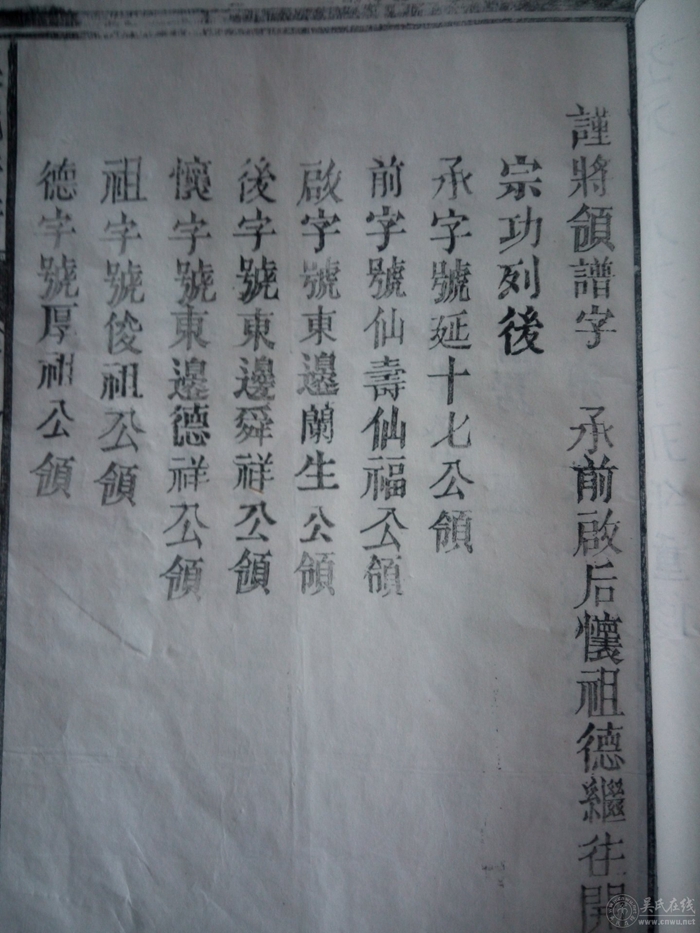 謹將領譜字 承前啟后懷祖德繼往開
宗功列後
承字號延十七公領
前字號仙壽仙福公領
啟字號東邊蘭生公領
後字號東邊舜祥公領
懷字號東邊德祥公領
祖字號俊祖公領
德字號厚祖公領
吴氏在线
www.cnwu.net